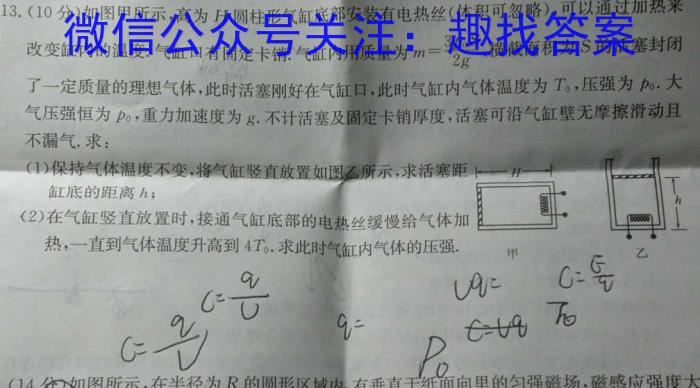 13.(10分)如图甲所示,高为H圆柱形气缸底部安装有电热丝(体积可忽略),可以通过加热来
微信公众号关注：趣找答案
改变缸内的温度.气缸口有固定卡销.气缸内用质量为m= 2g 横截面积为S的活塞封闭
了一定质量的理想气体,此时活塞刚好在气缸口,此时气缸内气体温度为T₀,压强为p₀.大
气压强恒为p₀,重力加速度为g.不计活塞及固定卡销厚度,活塞可沿气缸壁无摩擦滑动且
不漏气.求:
(1)保持气体温度不变,将气缸竖直放置如图乙所示,求活塞距
缸底的距离h;
(2)在气缸竖直放置时,接通气缸底部的电热丝缓慢给气体加
热,一直到气体温度升高到4T₀.求此时气缸内气体的压强.
H
h
甲
乙
C=q/U
Uq=
C=q/U
q=
P₀
T₀
(14分)如图所示,在半径为R的圆形区域内,有垂直于纸面向里的匀强磁场,磁感应强度大